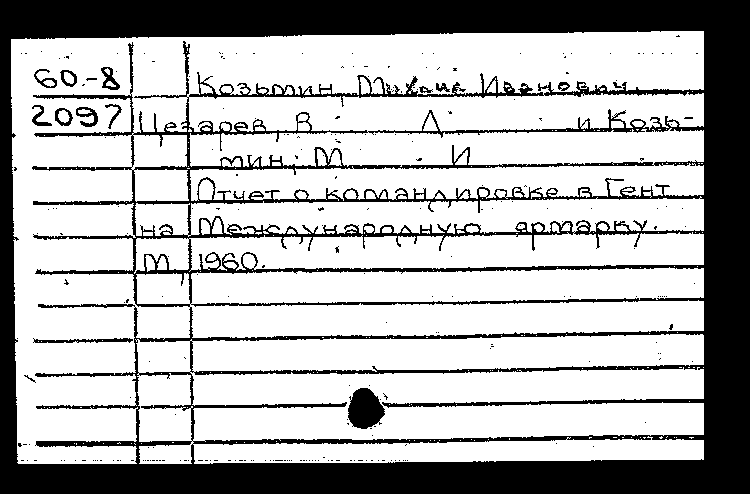 60.-8 Козьмин, Михаил Иванович.
2097 Цезарев, В. Л. и Козь-
мин, М. И.
Отчет о командировке в Гент
на Международную ярмарку.
М., 1960.